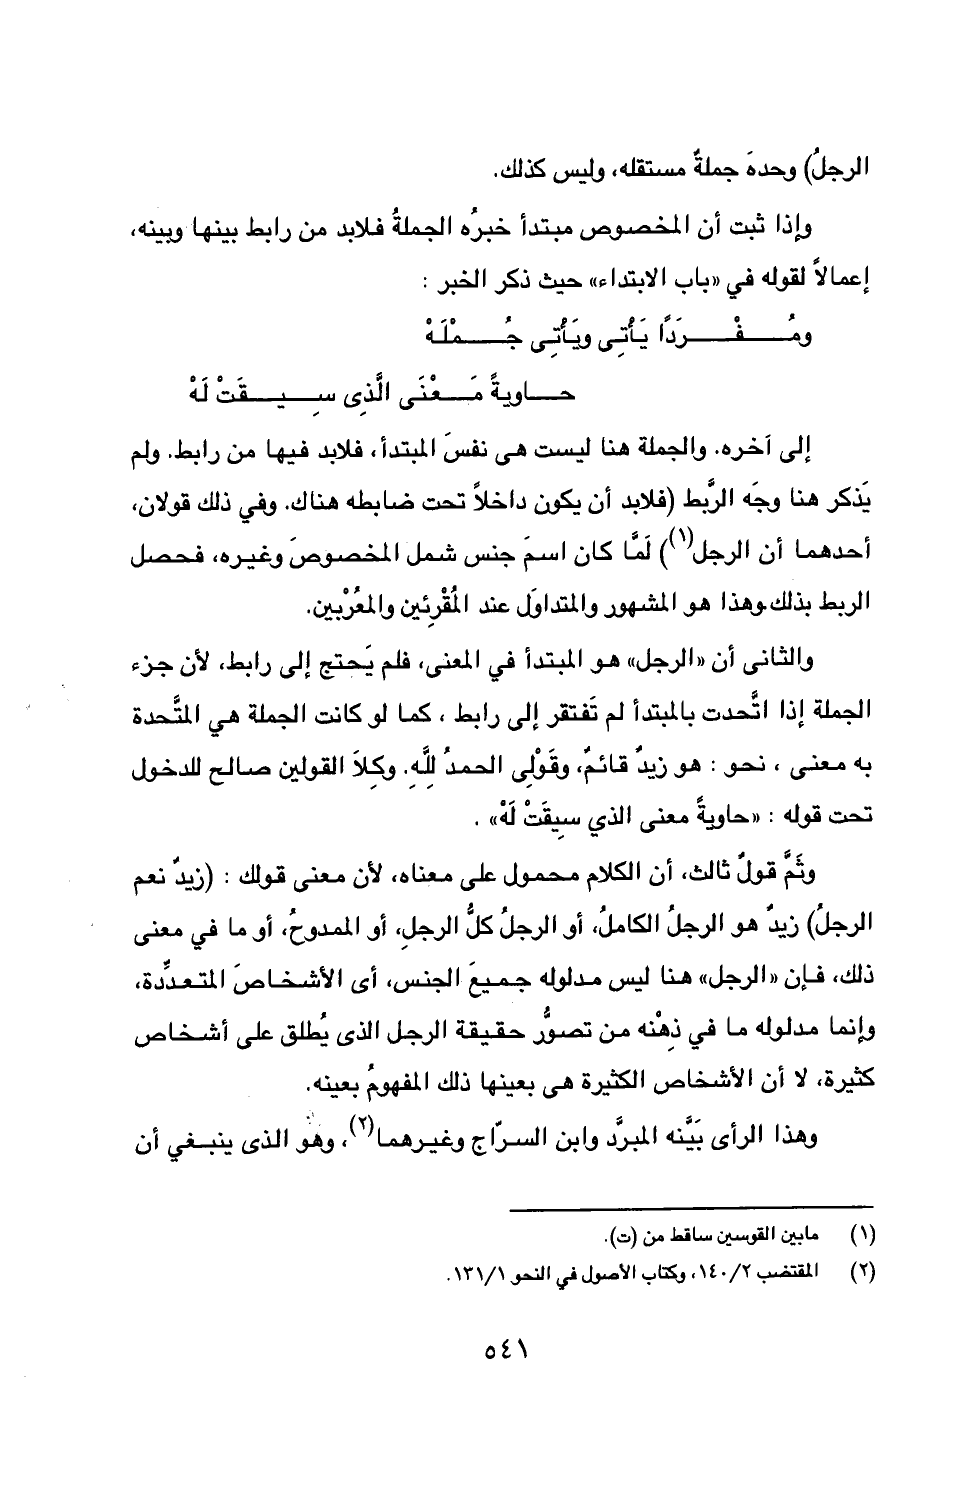 الرجلُ) وحدهَ جملةٌ مستقله، وليس كذلك.
وإذا ثبت أن المخصوص مبتدأ خبرُه الجملةُ فلابد من رابط بينها وبينه،
إعمالاً لقوله في «باب الابتداء» حيث ذكر الخبر :
ومُـــــفْـــــرَدًا يَأتِى ويَأتِى جُـــــمْلَهْ
حـــاويةً مَـــعْنَى الَّذِى سِـــيـــقَتْ لَهْ
إلى آخره. والجملة هنا ليست هى نفسَ المبتدأ، فلابد فيها من رابط. ولم
يَذكر هنا وجهَ الرَّبط (فلابد أن يكون داخلاً تحت ضابطه هناك. وفي ذلك قولان،
أحدهما أن الرجل(١)) لَمَّا كان اسمَ جنس شمل المخصوصَ وغيره، فحصل
الربط بذلك.وهذا هو المشهور والمتداوَل عند المُقْرِئين والمُعْرِبين.
والثانى أن «الرجل» هو المبتدأ في المعنى، فلم يَحتج إلى رابط، لأن جزء
الجملة إذا اتَّحدت بالمبتدأ لم تَفتقر إلى رابط ، كما لو كانت الجملة هي المتَّحدة
به معنى ، نحو : هو زيدٌ قائمٌ، وقَوْلِى الحمدُ للَّهِ. وكِلاَ القولين صالح للدخول
تحت قوله : «حاويةً معنى الذي سِيقَتْ لَهْ» .
وثَمَّ قولٌ ثالث، أن الكلام محمول على معناه، لأن معنى قولك : (زيدٌ نعم
الرجلُ) زيدٌ هو الرجلُ الكاملُ، أو الرجلُ كلُّ الرجلِ، أو الممدوحُ، أو ما في معنى
ذلك، فإن «الرجل» هنا ليس مدلوله جميعَ الجنس، أى الأشخاصَ المتعدِّدة،
وإنما مدلوله ما في ذِهْنه من تصوُّر حقيقة الرجل الذى يُطلق على أشخاص
كثيرة، لا أن الأشخاص الكثيرة هى بعينها ذلك المفهومُ بعينه.
وهذا الرأى بَيَّنه المبرَّد وابن السرّاج وغيرهما(٢)، وهو الذى ينبغي أن
(١) مابين القوسين ساقط من (ت).
(٢) المقتضب ١٤٠/٢، وكتاب الأصول في النحو ١٣١/١.
٥٤١